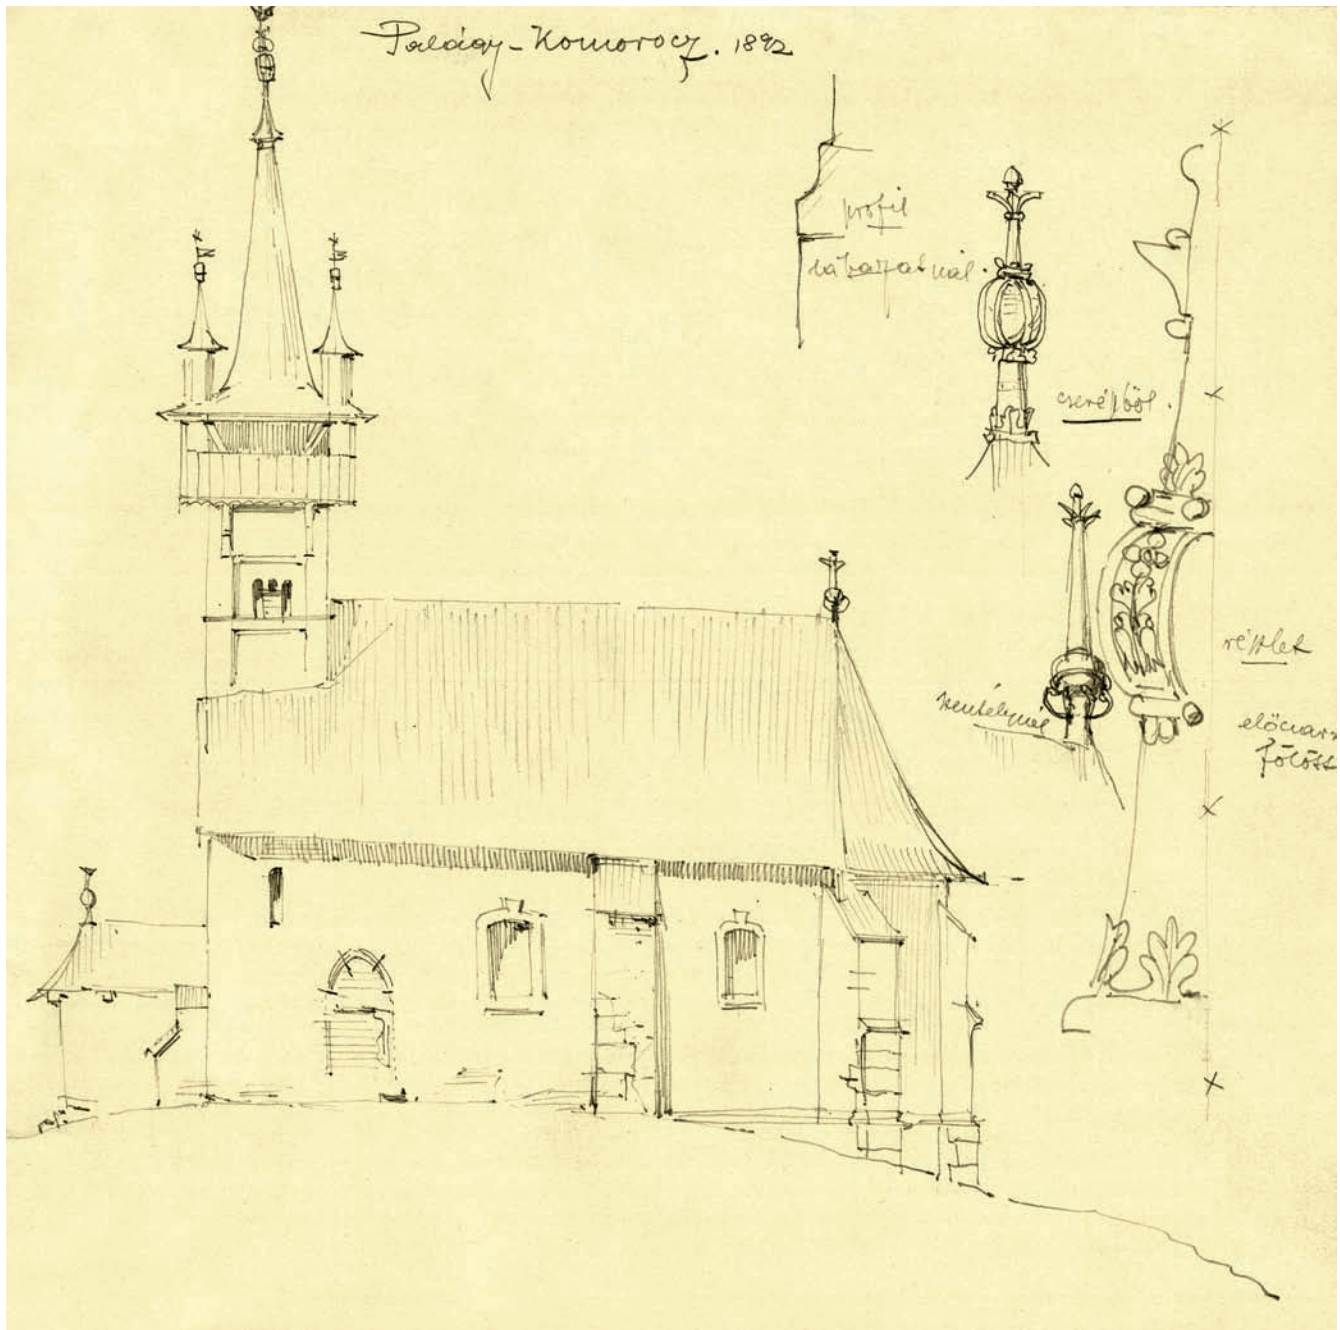 Palágy-Komorocz. 1892
profil
lábazatnál.
cserépből.
részlet
szentélynél
előcsar
fölött